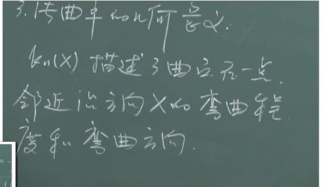 3.法曲率的几何意义.
kn(X) 描述了曲面在一点
邻近沿方向X的弯曲程
度和弯曲方向.